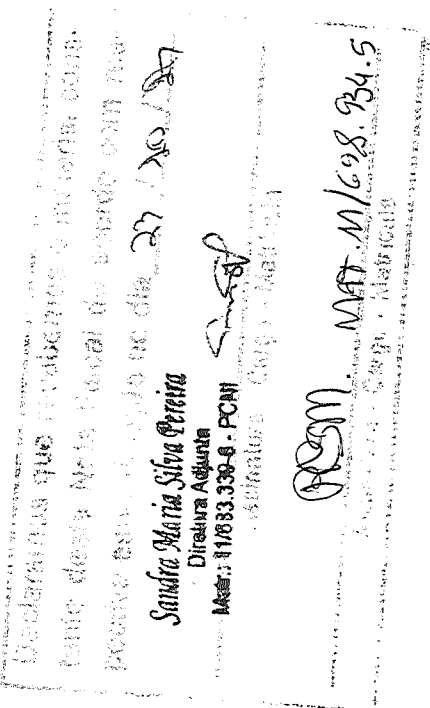 Declaramos que recebemos o material cons-
tante desta Nota Fiscal de acordo com
no dia 27 / 10 / 27
Sandra Maria Silva Pereira
Diretora Adjunta
Matr.: 11/683.339-6 - PCNI
Assinatura Cargo Matrícula
MAT. 11/698.934.5
Assinatura - Cargo - Matrícula